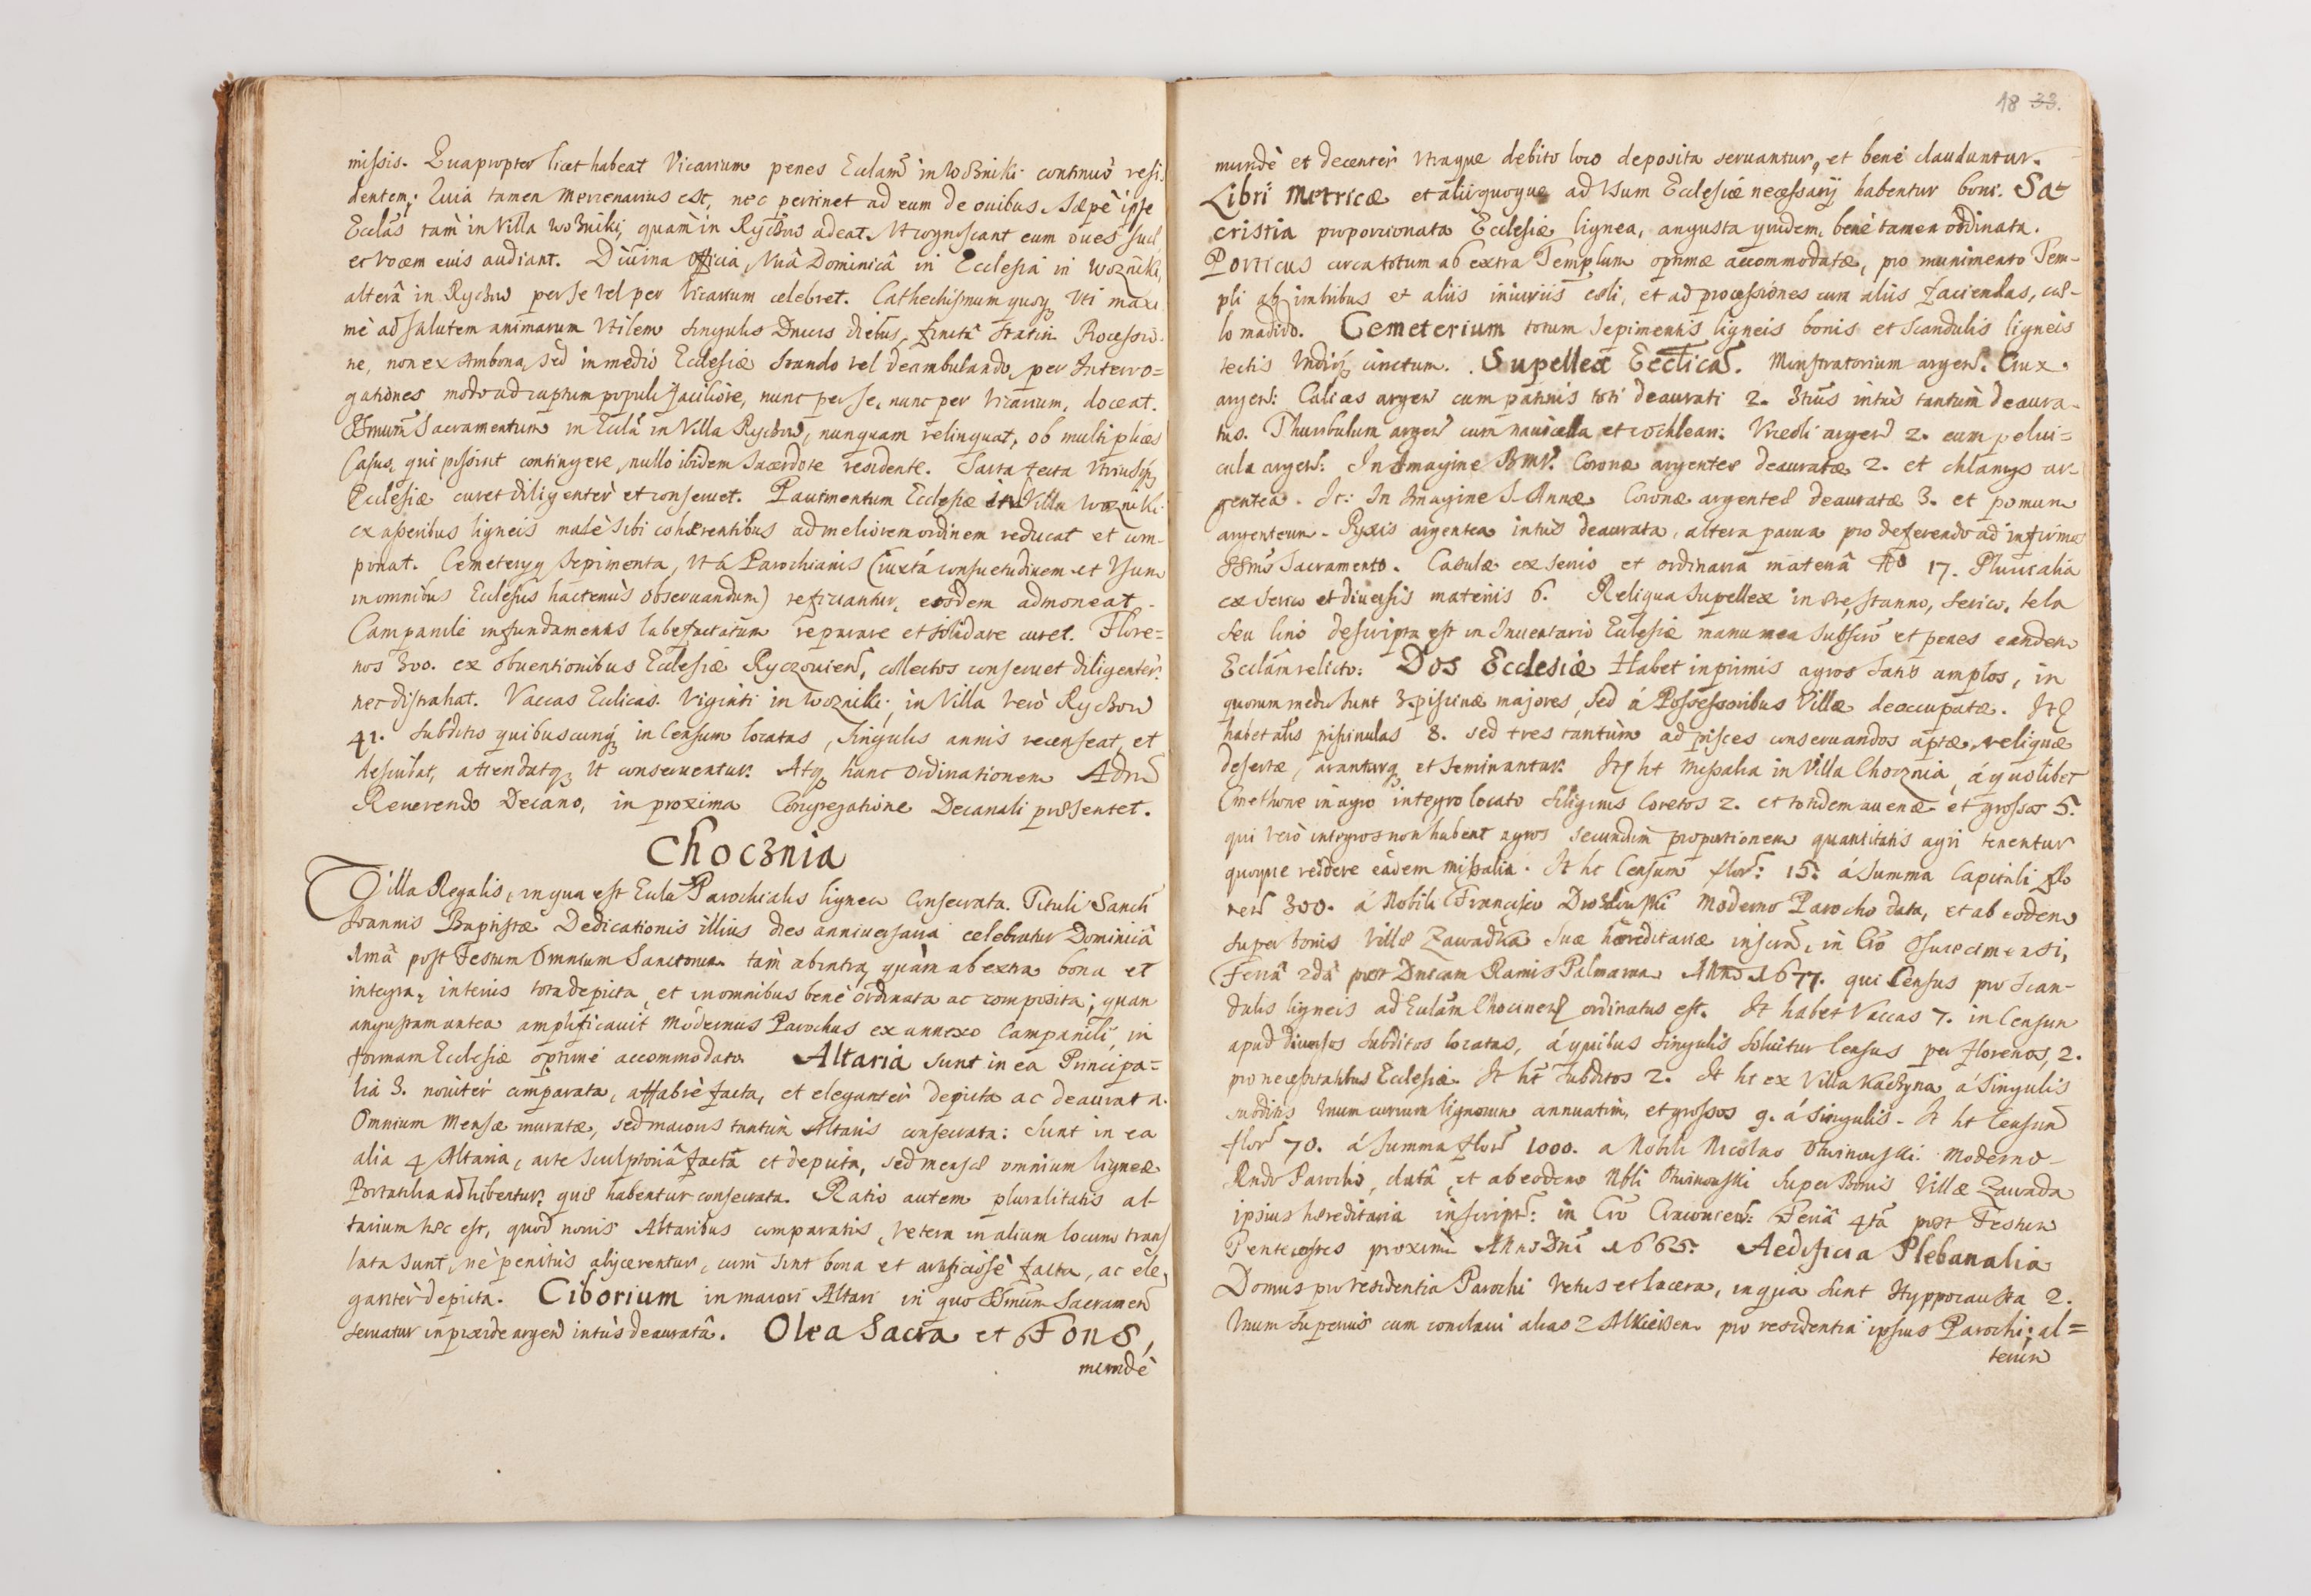 missis. Quapropter licet habeat Vicarium penes Ecclam in Wozniki continuò resi-
dentem; Quia tamen mercenarius est, nec pertinet ad eum de ouibus, sæpè ipse
Ecclas tam in Villa Wozniki, quàm in Ryczow adeat, Vt cognoscant eum oues suæ,
et vocem eius audiant. Diuina officia, Vnâ Dominicâ in Ecclesia in Wozniki,
alterâ in Ryczow per se vel per Vicarium celebret. Cathechismum quoq vti maxi
mè ad salutem animarum Vtilem singulis Dnicis diebus, finitâ statim Processio-
ne, non ex Ambona, sed in medio Ecclesiæ stando vel deambulando, per Interro=
gationes modo ad captum populi faciliore, nunc per se, nunc per Vicarium, doceat.
SSmum Sacramentum in Eccla in Villa Ryczow, nunquam relinquat, ob multiplices
Casus, qui possint contingere, nullo ibidem Sacerdote residente. Sarta tecta Vtriusq
Ecclesiæ curet diligenter et conseruet. Pauimentum Ecclesiæ in Villa Wozniki
ex asseribus ligneis malè sibi cohærentibus ad meliorem ordinem reducat et com-
ponat. Cemeterij sepimenta, Vt á Parochianis (iuxtá consuetudinem et Vsum
in omnibus Ecclesiis hactenùs obseruandum) reficiantur, eosdem admoneat.
Campanile in fundamentis labefactatum reparare et solidare curet. Flore=
nos 300. ex obuentionibus Ecclesiæ Ryczouien, collectos conseruet diligenter,
nec distrahat. Vaccas Ecclicas. Viginti in Wozniki; in Villa verò Ryczow
41. subditis quibuscunq in Censum locatas, singulis annis recenseat, et
describat, attendatq Vt conseruentur. Atq hanc ordinationem Adm
Reuerendo Decano, in proxima Congregatione Decanali præsentet.
Choc3nia
Villa Regalis, in qua est Eccla Parochialis lignea Consecrata. Tituli Sancti
Ioannis Baptistæ Dedicationis illius dies anniuersaria celebratur Dominicâ
1mâ post Festum Omnium Sanctorum. tàm ab intra, quàm ab extra bona et
integra, interius tota depicta, et in omnibus benè ordinata ac composita; quam
angustam antea amplificauit modernus Parochus ex annexo Campanili, in
formam Ecclesiæ optimè accommodato. Altaria sunt in ea Principa=
lia 3. nouiter comparata, affabrè facta, et eleganter depicta ac deaurata.
Omnium Mensæ muratæ, sed maioris tantùm Altaris consecrata: sunt in ea
alia 4 Altaria, arte sculptoriâ factâ et depicta, sed mensæ omnium ligneæ
Portatilia adhibentur, quæ habentur consecrata. Ratio autem pluralitatis al-
tarium hæc est, quod nouis Altaribus comparatis, vetera in alium locum trans
lata sunt, nè penitùs abijcerentur, cum sint bona et artificiosè facta, ac ele,
ganter depicta. Ciborium in maiori Altari in quo SSmum Sacramen
seruatur in pixide argen intùs deauratâ. Olea Sacra et Fons,
mundè
18 33.
mundè et decenter vtraque debito loco deposita seruantur, et benè clauduntur.
Libri Metricæ et alii quoque ad Vsum Ecclesiæ necessarij habentur boni. Sa=
cristia proportionata Ecclesiæ lignea, angusta quidem, benè tamen ordinata.
Porticus circa totum ab extra Templum optimæ accommodatæ, pro munimento Tem-
pli ab imbribus et aliis iniuriis cæli, et ad processiones cum aliis faciendas, cæ-
lo madido. Cemeterium totum sepimentis ligneis bonis et scandulis ligneis
tectis Vndiq cinctum. Supellex Ecclica. Monstratorium argen. Crux
argen: Calices argen cum patinis toti deaurati 2. 3tius intùs tantùm deaura-
tus. Thuribulum argen cum nauicella et cochleari: Vrceoli argen 2. cum pelui=
cula argen: In Imagine BMV. Coronæ argenteæ deauratæ 2. et chlamys ar
gentea. It: In Imagine S. Annæ Coronæ argenteæ deauratæ 3. et pomum
argenteum. Pyxis argentea intùs deaurata, altera parua pro deferendo ad infirmos
SSmo Sacramento. Casulæ ex serico et ordinaria materiâ No 17. Pluuialia
ex serico et diuersis materiis 6. Reliqua Supellex in ære, stanno, serico, tela
seu lino descripta est in Inuentario Ecclesiæ manu mea subscr et penes eandem
Ecclam relicto: Dos Ecclesiæ Habet inprimis agros satis amplos, in
quorum medio sunt 3 piscinæ majores, sed á Possessoribus Villæ deoccupatæ. It
habet alias piscinulas 8. sed tres tantùm ad pisces conseruandos aptæ, reliquæ
desertæ, aranturq et seminantur. It ht missalia in Villa Chocznia, á quolibet
Cmethone in agro integro locato siliginis Coretos 2. et totidem auenæ et grossos 5.
qui verò integros non habent agros secundùm proportionem quantitatis agri tenentur
quoque reddere eâdem missalia. It ht Censum flor: 15. á Summa Capitali flo
ren 300. á Nobili Francisco moderno Parocho data, et ab eodem
super bonis Villæ Zawadka suæ hæreditariæ inscra, in Cro Osuiecimensi,
Feriâ 2dâ post Dnicam Ramis Palmarum Anno 1677. qui Census pro scan-
dulis ligneis ad Ecclam Chocznen ordinatus est. It habet Vaccas 7. in Censum
apud diuersos subditos locatas, á quibus singulis soluitur Census per florenos, 2.
pro necessitatibus Ecclesiæ. It ht subditos 2. It ht ex Villa Kaczyna á singulis
modiis Vnum currum lignorum annuatim, et grossos 9. á singulis. It ht Censum
flor 70. á Summa flor 1000. a Nobili Nicolao moderno
Rndo Parocho, datâ, et ab eodem Nbli super Bonis Villæ Zawada
ipsius hæreditaria inscript: in Cro Cracouien: Feriâ 4tâ post Festum
Pentecostes proximè Anno Dni 1665. Aedificia Plebanalia
Domus pro residentia Parochi vetus et lacera, in qua sunt Hyppocausta 2.
Vnum superius cum conclaui alias z Alkierzem pro residentia ipsius Parochi; al=
terum